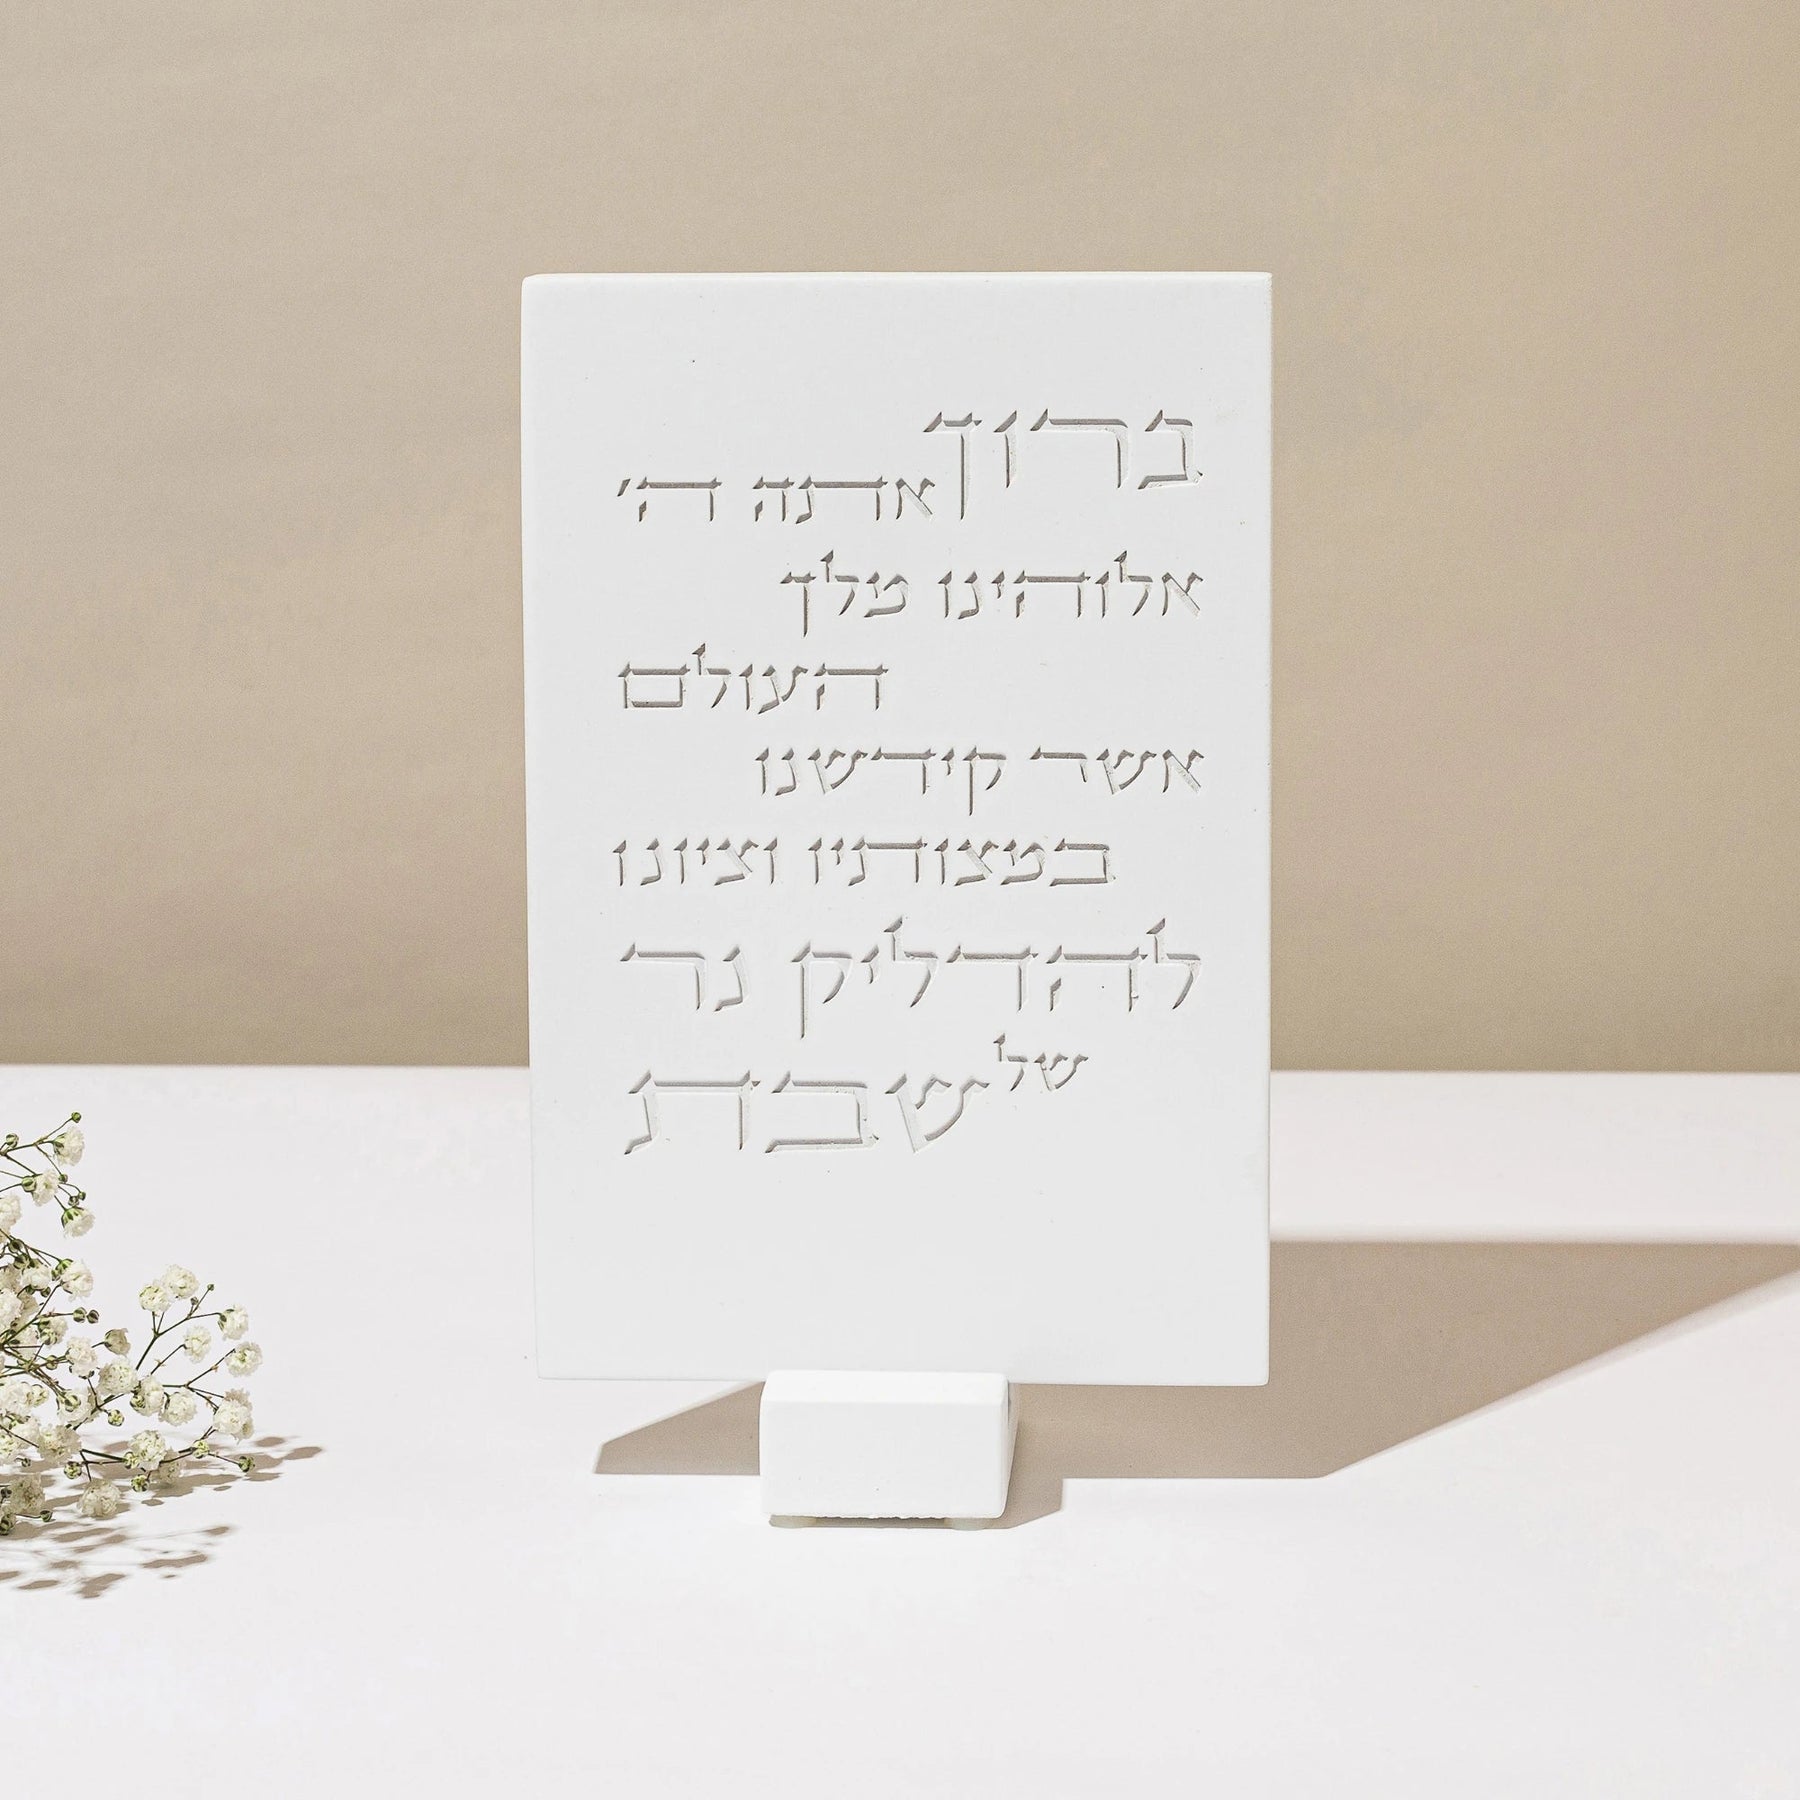 ברוך
אתה ה'
אלוהינו מלך
העולם
אשר קידשנו
במצותיו וציונו
להדליק נר
של
שבת